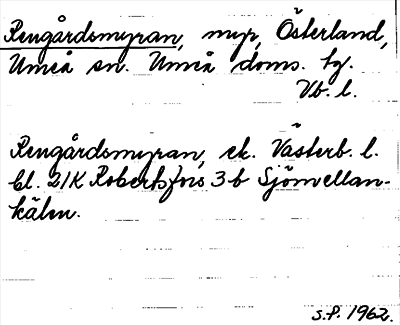 Rengårdsmyran, myr, Österland,
Umeå sn. Umeå doms. tg.
Vb. l.
Rengårdsmyran, ek. Västerb. l.
bl. 21K Robertsfors 3b Sjömellan-
kälen.
s.f. 1962.